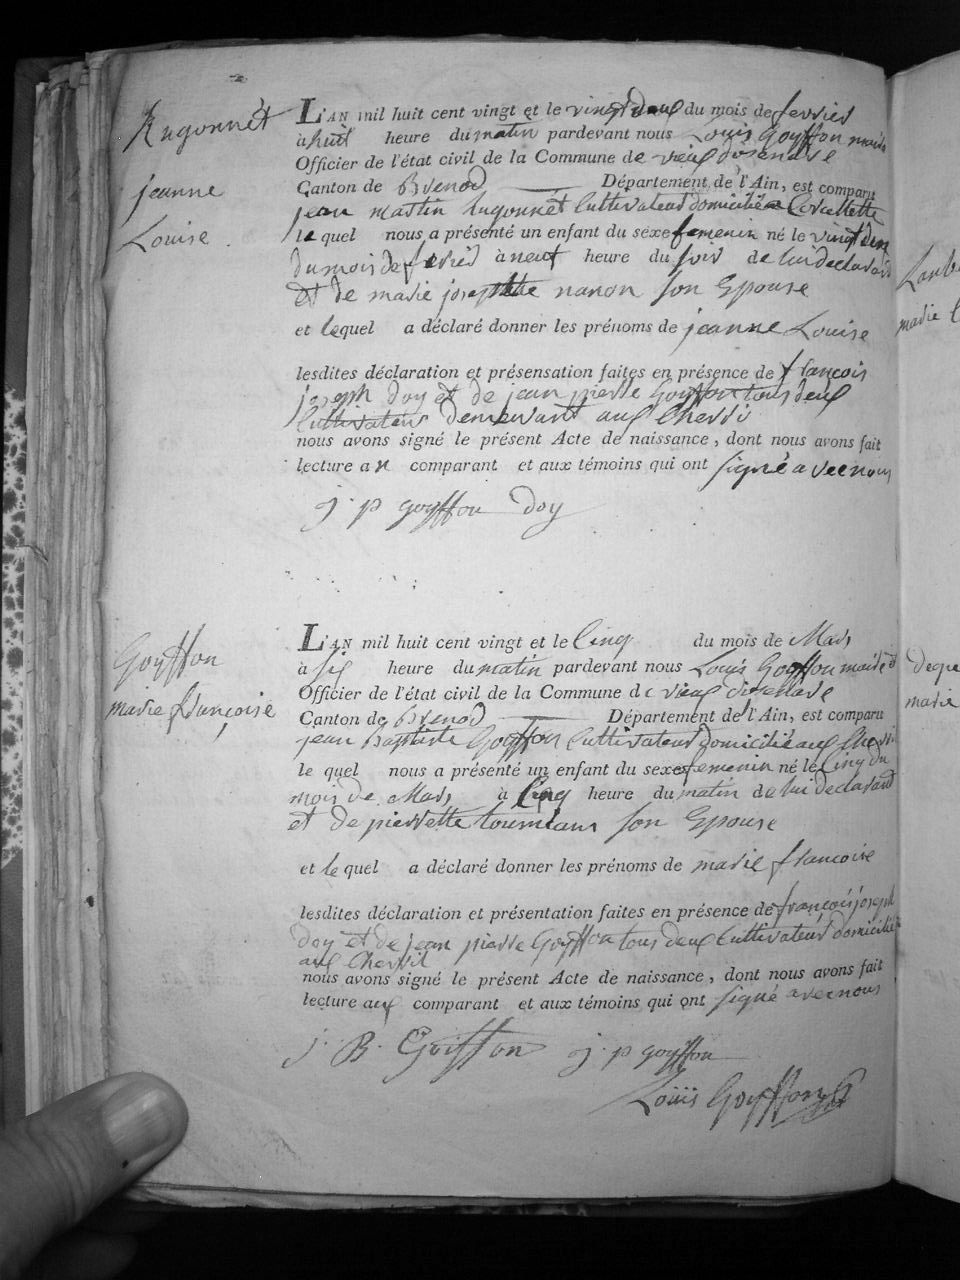 Rugonnet
jeanne
Louise.
L'AN mil huit cent vingt et le vingt deux du mois de fevrier
à huit heure du matin pardevant nous Louis Goyffon maire
Officier de l'état civil de la Commune de vieux disenave
Canton de Brenod Département de l'Ain, est comparu
jean martin Rugonnet Cultivateur domicilié a Corcellette
le quel nous a présenté un enfant du sexe femenin né le vingt deux
du mois de fevrier à neuf heure du soir de lui declarant
et de marie josephtte nanon son Epouse
et lequel a déclaré donner les prénoms de jeanne Louise
lesdites déclaration et présensation faites en présence de francois
joseph doy et de jean pierre Goyffon tous deux
Cultivateurs demeurant aux Chevril
nous avons signé le présent Acte de naissance, dont nous avons fait
lecture au comparant et aux témoins qui ont signé avec nous
j. p goyffon doy
Goyffon
marie françoise
L'AN mil huit cent vingt et le Cinq du mois de Mars
à six heure du matin pardevant nous Louis Goyffon maire et
Officier de l'état civil de la Commune de vieux disenave
Canton de Brenod Département de l'Ain, est comparu
jean Baptiste Goyffon Cultivateur domicilié aux Chevril
le quel nous a présenté un enfant du sexe femenin né le Cinq du
mois de Mars à Cinq heure du matin de lui declarant
et de pierrette son Epouse
et le quel a déclaré donner les prénoms de marie francoise
lesdites déclaration et présentation faites en présence de francois joseph
doy et de jean pierre Goyffon tous deux Cultivateur domicilié
aux Chevril
nous avons signé le présent Acte de naissance, dont nous avons fait
lecture aux comparant et aux témoins qui ont signé avec nous
j. B. Goiffon j. p goyffon
Louis Goyffon
marie
marie